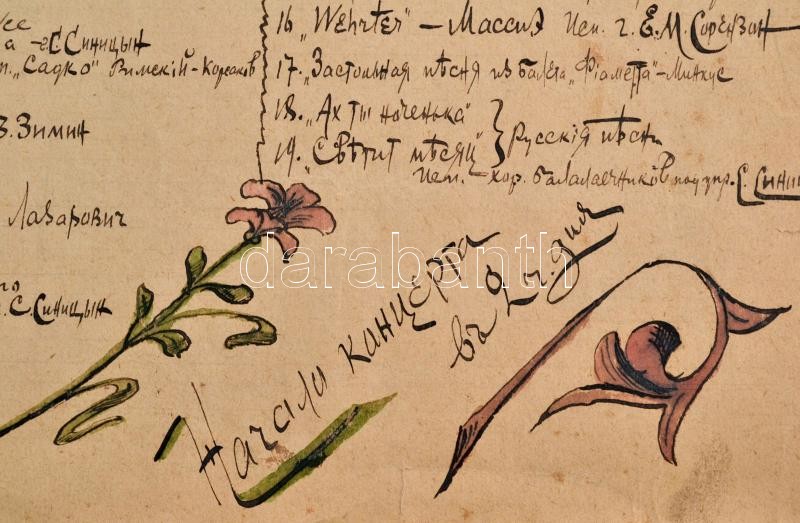 а -еС Синицын
"Садко" Римскій-Корсаков
З. Зимин
Лазарович
С. Синицын
16 "Wehrter" – Массиэ Исп. г. Е. М. Сорензон
17. "Застольная пѣсня из балета "Фіаметта" – Минкус
18. "Ах ты ноченька"
19. "Свѣтит мѣсяц" } Русскія пѣсн
исп. – хор. балалаечников под упр. С. Сини
Начало канцерта
въ 2 ч. дня
darabanth